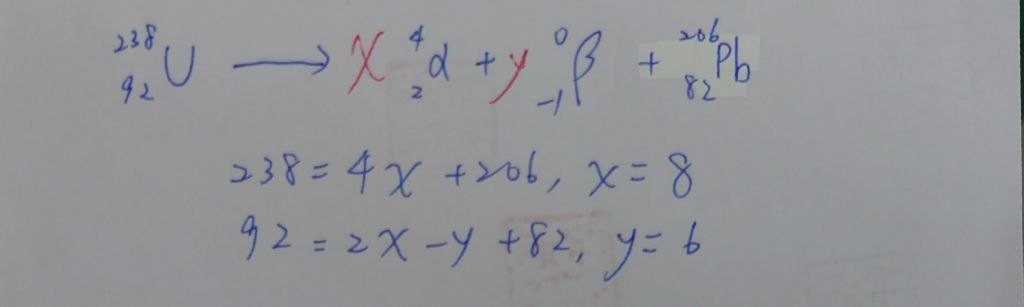 ²³⁸₉₂U ⟶ x ⁴₂α + y ⁰₋₁β + ²⁰⁶₈₂Pb
238 = 4x + 206, x = 8
92 = 2x - y + 82, y = 6